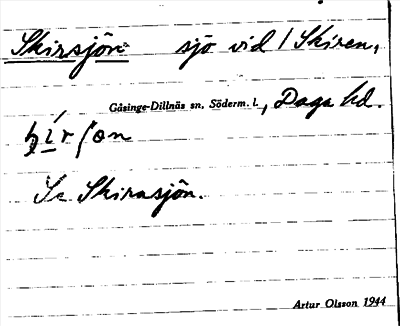 Skirsjön sjö vid Skiren,
Gåsinge-Dillnäs sn, Söderm. l., Daga hd.
Se Skirnsjön.
Artur Olsson 1944